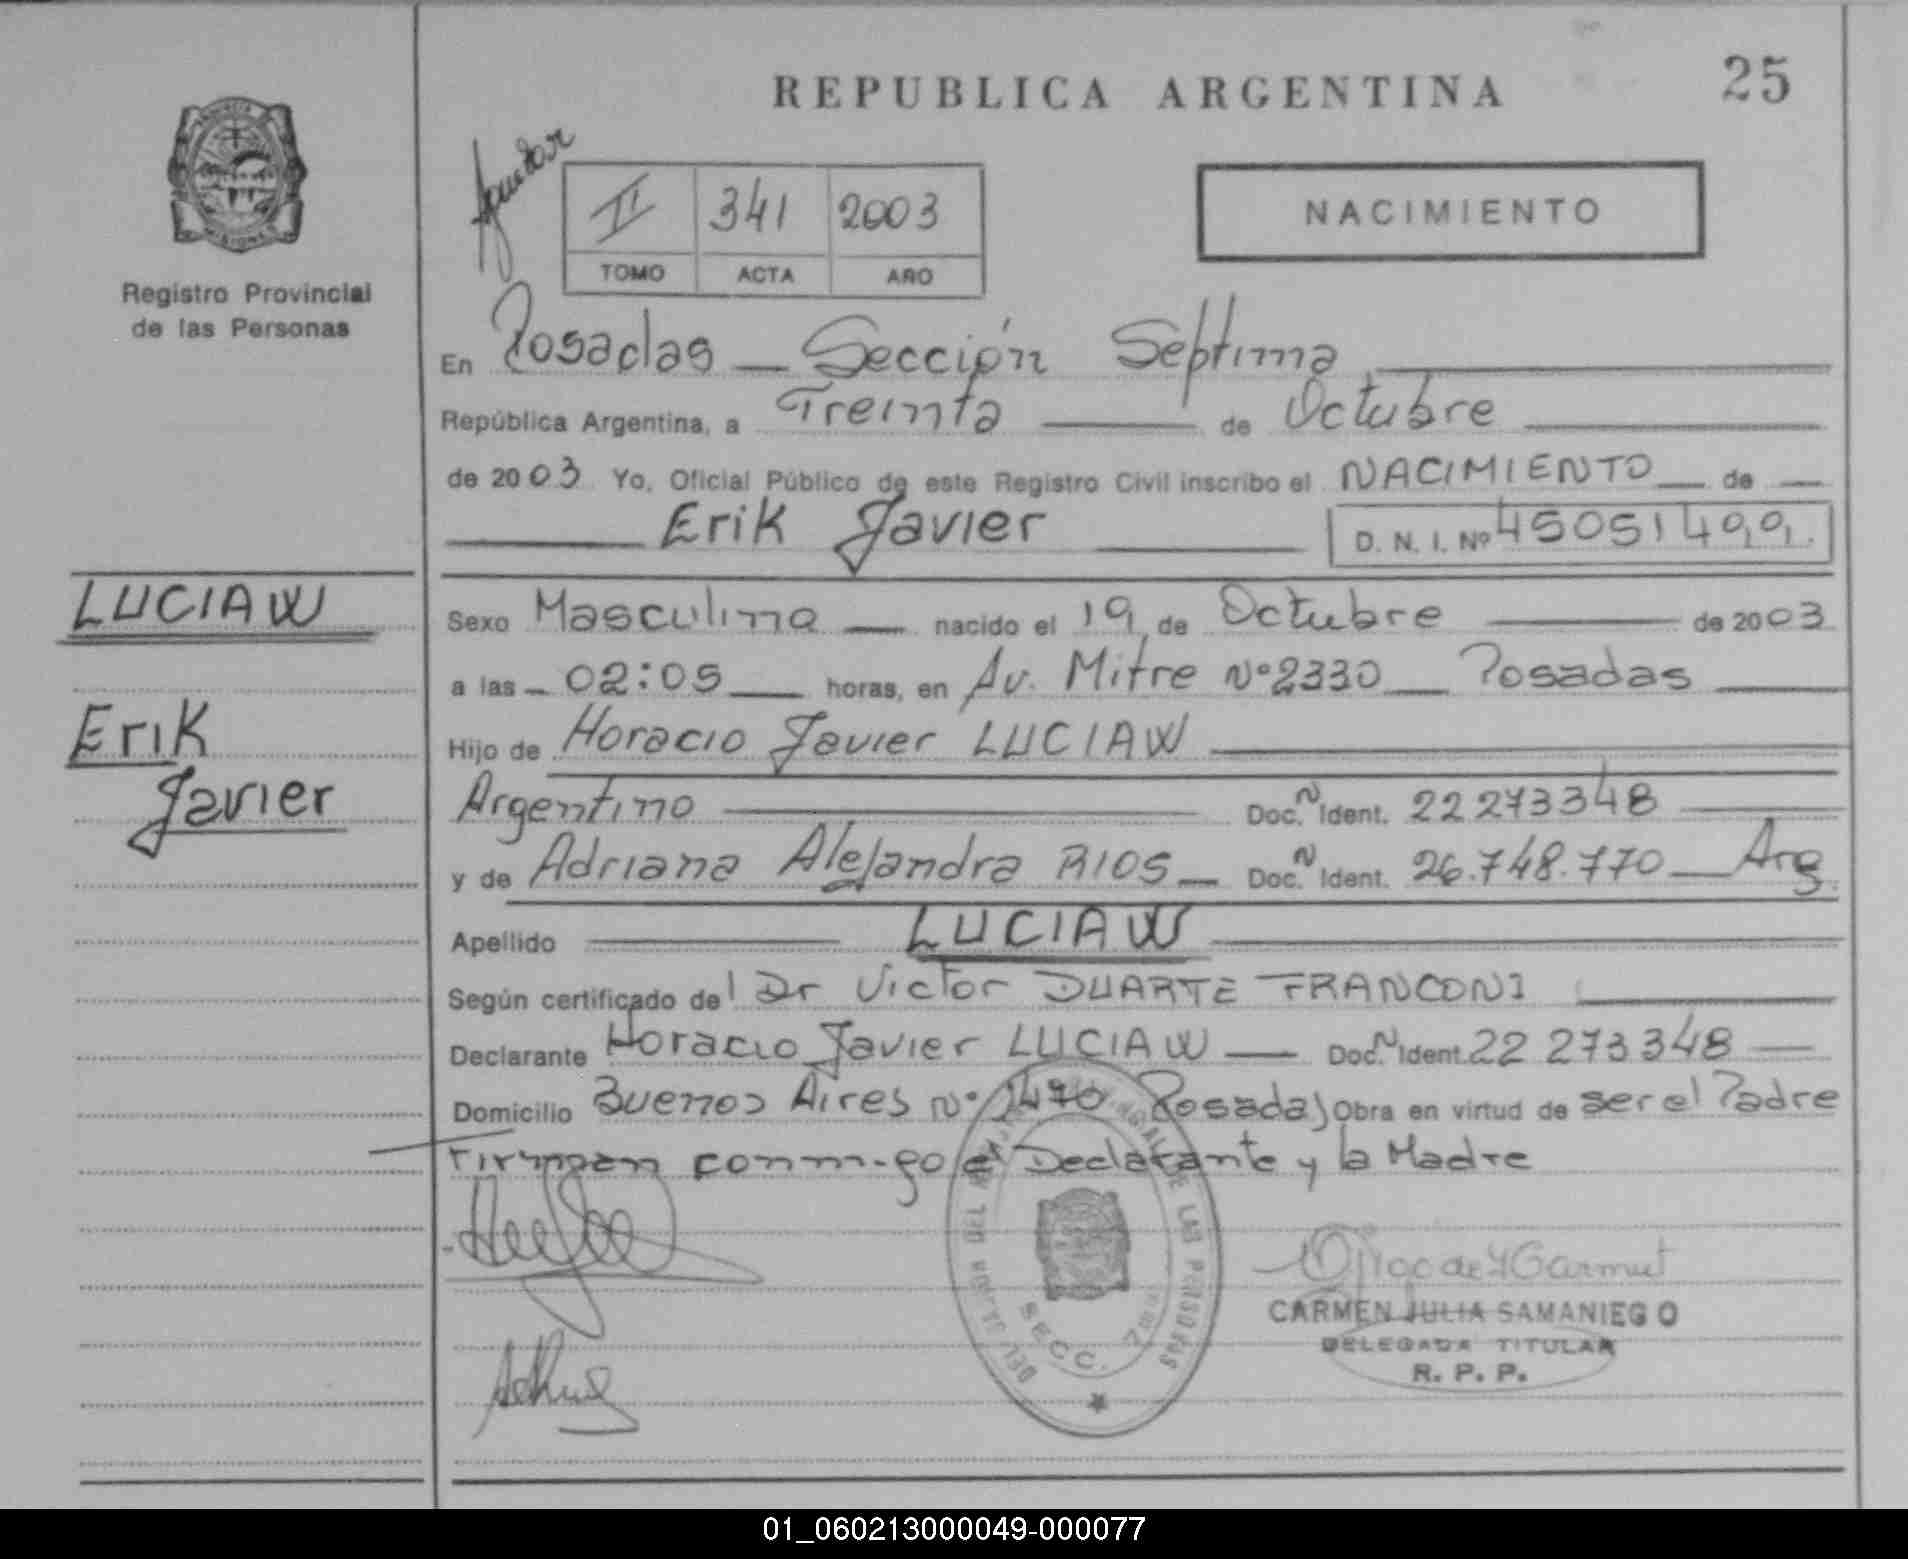 REPUBLICA ARGENTINA
25
Registro Provincial
de las Personas
II 341 2003
TOMO ACTA AÑO
NACIMIENTO
En Posadas — Sección Septima
República Argentina, a Treinta — de Octubre
de 2003 Yo, Oficial Público de este Registro Civil inscribo el NACIMIENTO — de —
Erik Javier D. N. I. Nº
LUCIAW
Erik
Javier
Sexo Masculino — nacido el 19 de Octubre — de 2003
a las — 02:05 — horas, en Av. Mitre Nº 2330 — Posadas
Hijo de Horacio Javier LUCIAW
Argentino — Doc. N Ident. 22 273348
y de Adriana Alejandra RIOS — Doc. N Ident. 26.748.770 — Arg.
Apellido — LUCIAW
Según certificado del Dr Victor DUARTE FRANCONI
Declarante Horacio Javier LUCIAW — Doc. N Ident. 22 273348 —
Domicilio Buenos Aires Nº 1470 Posadas Obra en virtud de ser el Padre
Firman conmigo el Declarante y la Madre
SECC. 7ma
CARMEN JULIA SAMANIEGO
DELEGADA TITULAR
R. P. P.
01_060213000049-000077